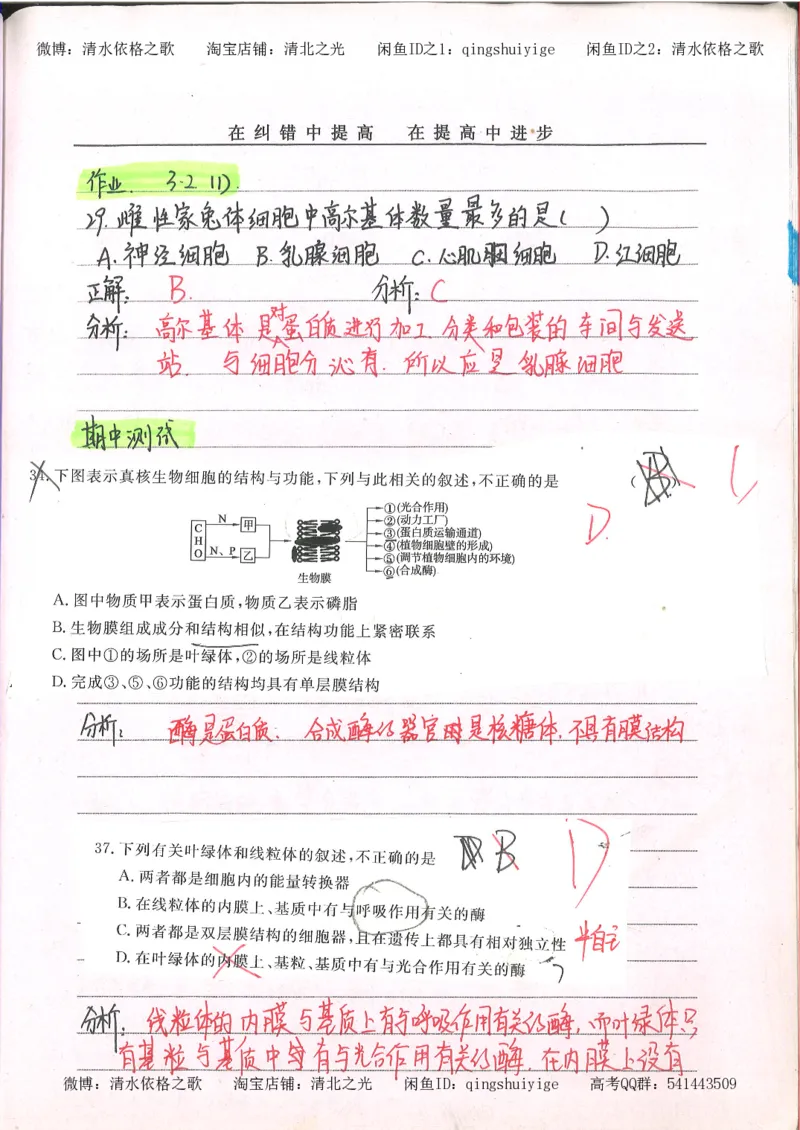 微博：清水依格之歌 淘宝店铺：清北之光 闲鱼ID之1：qingshuiyige 闲鱼ID之2：清水依格之歌
在纠错中提高 在提高中进步
作业. 3.2 (1).
29. 雌性家兔体细胞中高尔基体数量最多的是( )
A.神经细胞 B.乳腺细胞 C.心肌细胞 D.红细胞
正解: B. 分析: C
对
分析: 高尔基体是蛋白质进行加工分类和包装的车间与发送
站. 与细胞分沁有. 所以应是乳腺细胞
期中测试
34.下图表示真核生物细胞的结构与功能,下列与此相关的叙述,不正确的是 ( B )
D.
C H O
N 甲
N、P 乙
生物膜
①(光合作用)
②(动力工厂)
③(蛋白质运输通道)
④(植物细胞壁的形成)
⑤(调节植物细胞内的环境)
⑥(合成酶)
A.图中物质甲表示蛋白质,物质乙表示磷脂
B.生物膜组成成分和结构相似,在结构功能上紧密联系
C.图中①的场所是叶绿体,②的场所是线粒体
D.完成③、⑤、⑥功能的结构均具有单层膜结构
分析: 酶是蛋白质. 合成酶的器官时是核糖体.不具有膜结构
37.下列有关叶绿体和线粒体的叙述,不正确的是 B D
A.两者都是细胞内的能量转换器
B.在线粒体的内膜上、基质中有与呼吸作用有关的酶
C.两者都是双层膜结构的细胞器,且在遗传上都具有相对独立性 半自主
D.在叶绿体的内膜上、基粒、基质中有与光合作用有关的酶
分析: 线粒体的内膜与基质上有与呼吸作用有关的酶,而叶绿体只
有基粒与基质中含有与光合作用有关的酶.在内膜上没有
微博：清水依格之歌 淘宝店铺：清北之光 闲鱼ID：qingshuiyige 高考QQ群：541443509